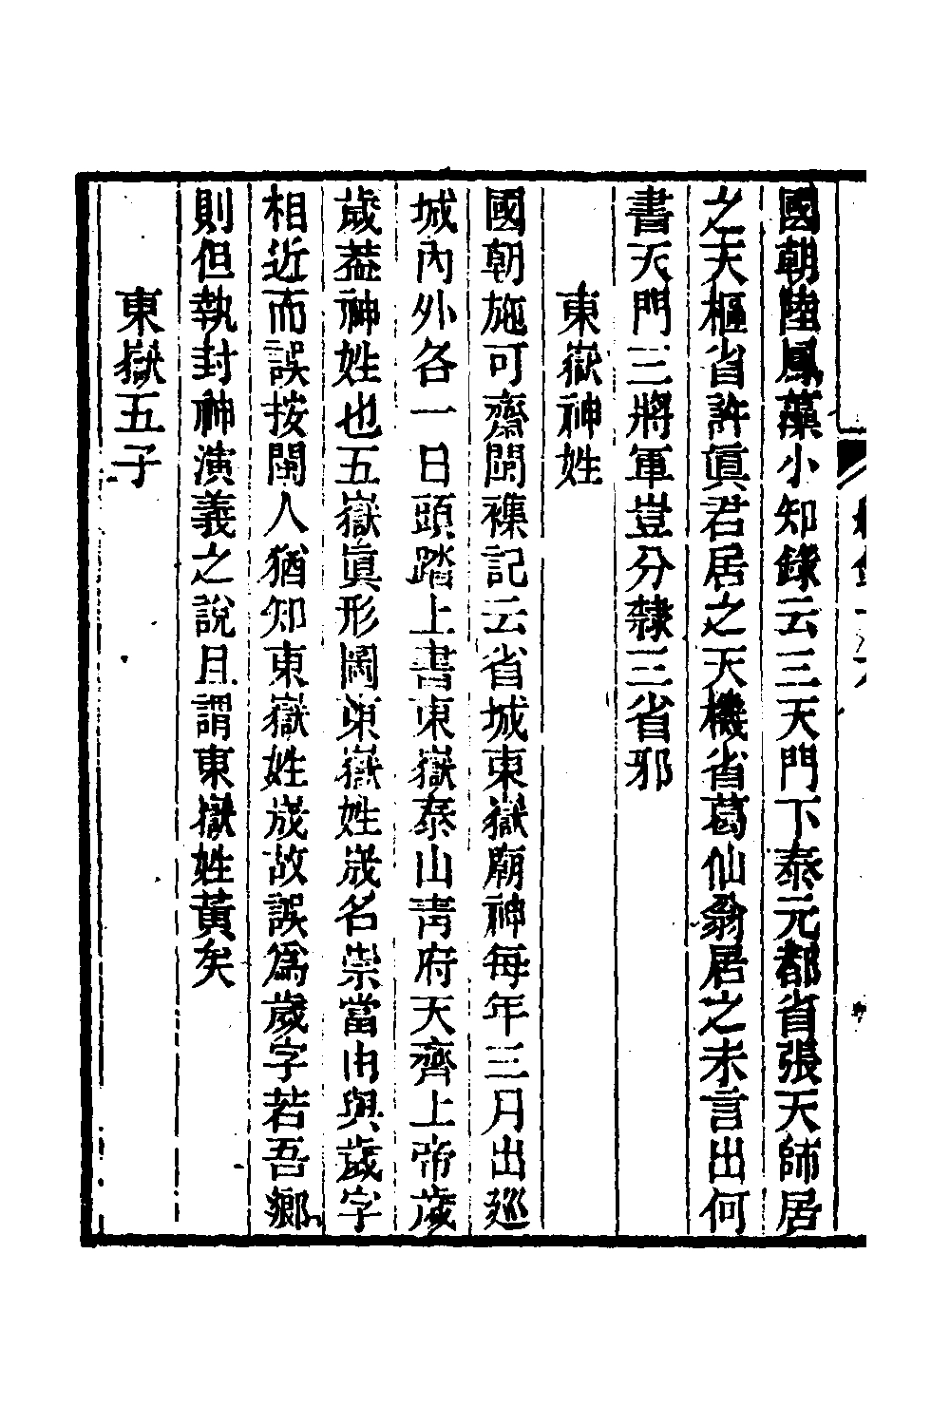 國朝陸鳳藻小知錄云三天門下泰元都省張天師居
之天樞省許眞君居之天機省葛仙翁居之未言出何
書天門三將軍豈分隸三省邪
東嶽神姓
國朝施可齋閩襍記云省城東嶽廟神每年三月出廵
城內外各一日頭踏上書東嶽泰山靑府天齊上帝歲
歲葢神姓也五嶽眞形圖東嶽姓歲名崇當由與歲字
相近而誤按閩人猶知東嶽姓歲故誤爲歲字若吾鄉
則但執封神演義之說且謂東嶽姓黃矣
東嶽五子